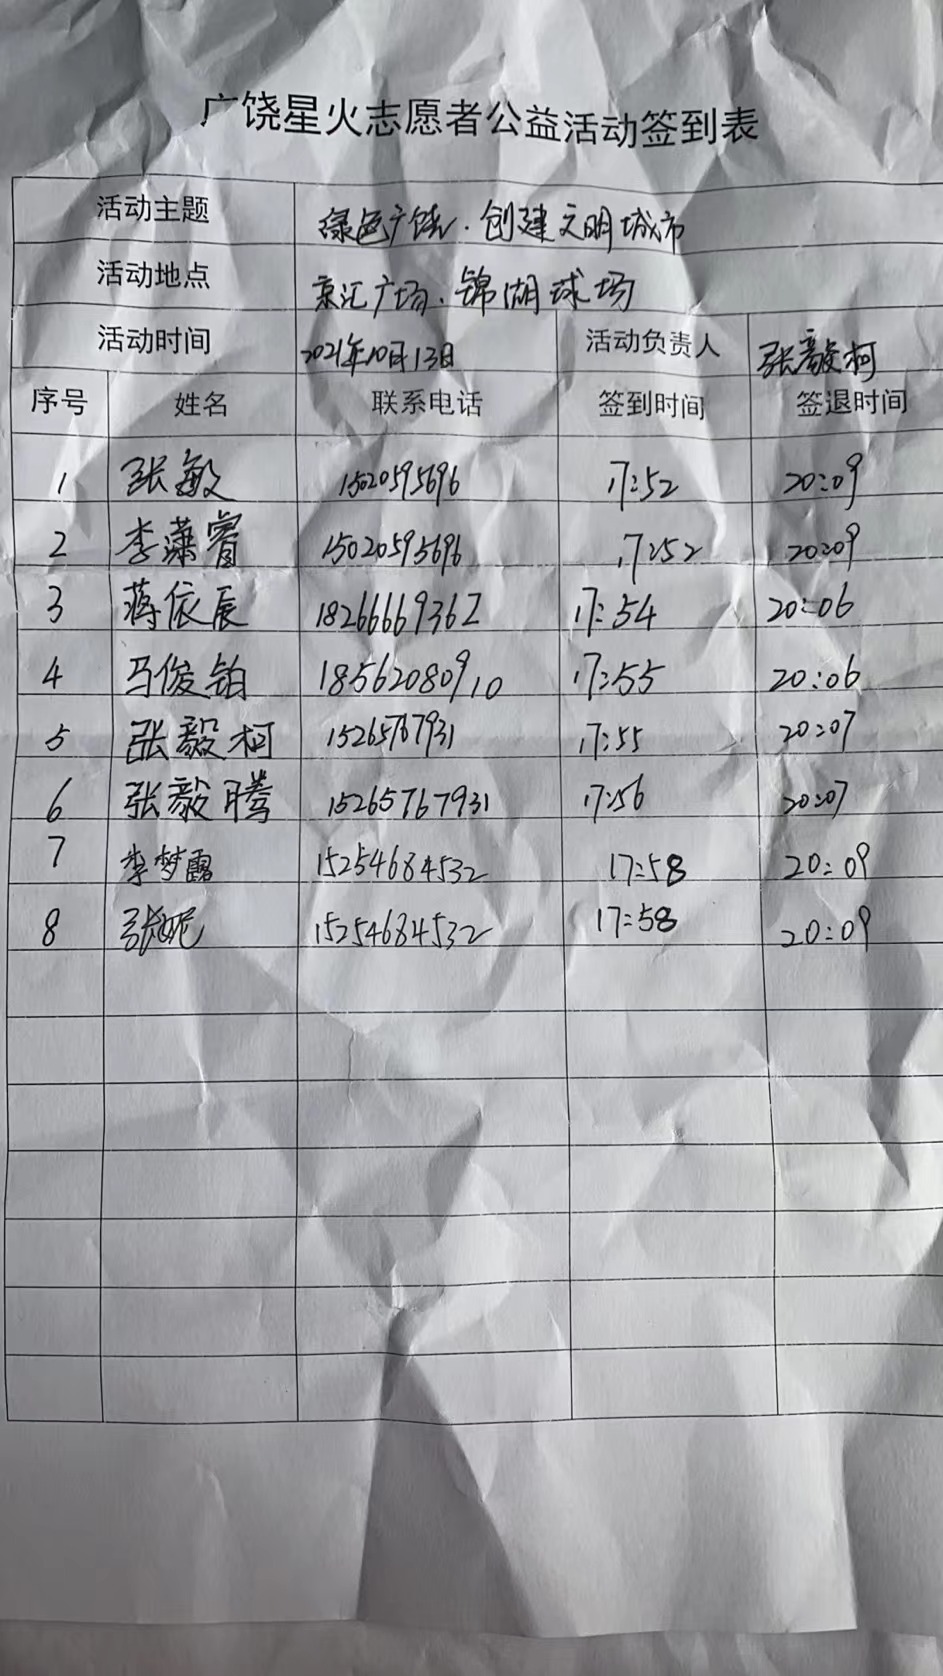 广饶星火志愿者公益活动签到表
活动主题 绿色广饶.创建文明城市
活动地点 京汇广场.锦湖球场
活动时间 2021年10月13日 活动负责人 张毅柯
序号 姓名 联系电话 签到时间 签退时间
1 张敏 15020595696 17:52 20:09
2 李潇睿 15020595696 17:52 20:09
3 蒋依辰 18266669362 17:54 20:06
4 马俊铂 18562080910 17:55 20:06
5 张毅柯 15265767931 17:55 20:07
6 张毅腾 15265767931 17:56 20:07
7 李梦露 15254684532 17:58 20:09
8 张妮 15254684532 17:58 20:09